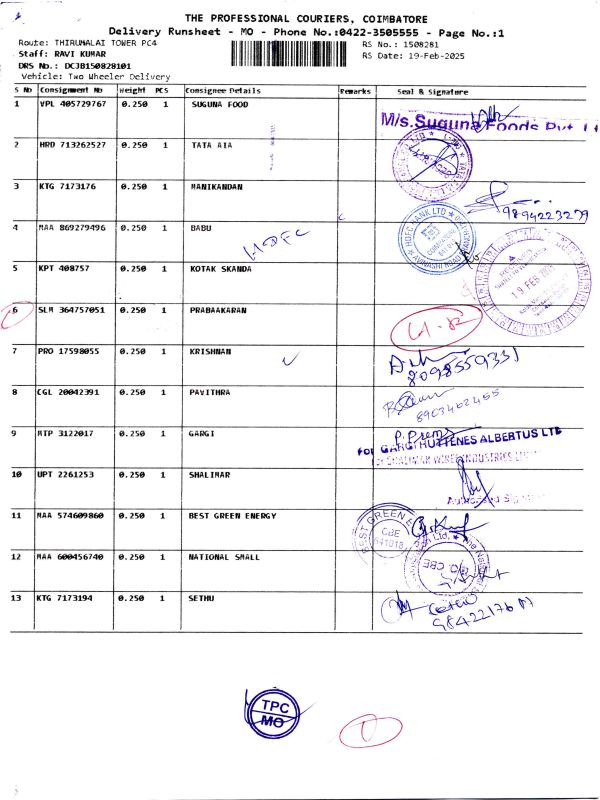 THE PROFESSIONAL COURIERS, COIMBATORE
Delivery Runsheet - MO - Phone No.:0422-3505555 - Page No.:1
Route: THIRUMALAI TOWER PC4
RS No.: 1508281
Staff: RAVI KUMAR
RS Date: 19-Feb-2025
DRS No.: DCJB150828101
Vehicle: Two Wheeler Delivery
S No Consignment No Weight PCS Consignee Details Remarks Seal & Signature
1 VPL 405729767 0.250 1 SUGUNA FOOD
M/s.Suguna Foods Pvt. Lt
2 HRD 713262527 0.250 1 TATA AIA
3 KTG 7173176 0.250 1 MANIKANDAN
9894223279
4 MAA 869279496 0.250 1 BABU
HDFC
HDFC BANK LTD
5 KPT 408757 0.250 1 KOTAK SKANDA
19 FEB
6 SLM 364757051 0.250 1 PRABAAKARAN
7 PRO 17598055 0.250 1 KRISHNAN
8098559331
8 CGL 20042391 0.250 1 PAVITHRA
8903462455
9 MTP 3122017 0.250 1 GARGI
P. Prem
FOR GARGI HUTTENES ALBERTUS LTD
10 UPT 2261253 0.250 1 SHALIMAR
11 MAA 574609860 0.250 1 BEST GREEN ENERGY
BEST GREEN E
CBE
641018
12 MAA 600456740 0.250 1 NATIONAL SMALL
CBE
13 KTG 7173194 0.250 1 SETHU
TPC
MO